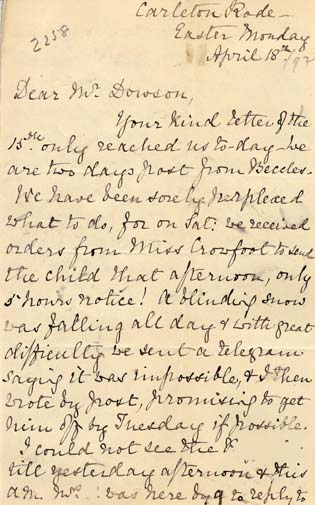 2258
Carleton Rode -
Easter Monday
April 18th/92
Dear Mr Dowson,
Your kind letter of the
15th only reached us to-day - we
are two days post from Beccles.
We have been sorely perplexed
what to do, for on Sat: we received
orders from Miss Crowfoot to send
the child that afternoon, only
5 hours notice! A blinding snow
was falling all day & with great
difficulty we sent a telegram
saying it was impossible, & I then
wrote by post, promising to get
him off by Tuesday if possible.
I could not see the
till yesterday afternoon & this
a.m. Mrs : was here by 9 to reply to